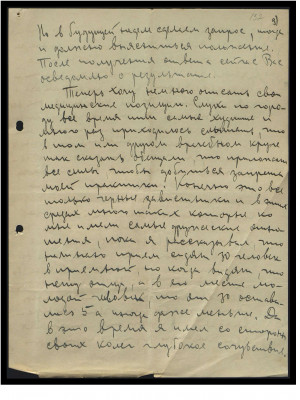 Но в будущей неделе сделаем запрос, тогда
и должно выясниться положение.
После получения ответа сейчас Вас
осведомлю о результате.
Теперь хочу немного описать свои
медицинские позиции. Слухи по городу
все время шли самые худшие и
много раз приходилось слышать, что
в том или другом врачебном круге
так сказать обещали, что приложат
все силы чтобы добиться запрета
моей практики. Конечно это все
только черные завистники и в этих
среди много таких которые ко
мне имели самые дружеские
отношения, пока я рассказывал, что
на него прием сидят 30 человек
в приемной но когда видят, что
и в его месте
молодой человек, что от 30 остались
5 а иногда даже меньше. Да
в это время я имел со стороны
своих колег глубокое сочувствие.